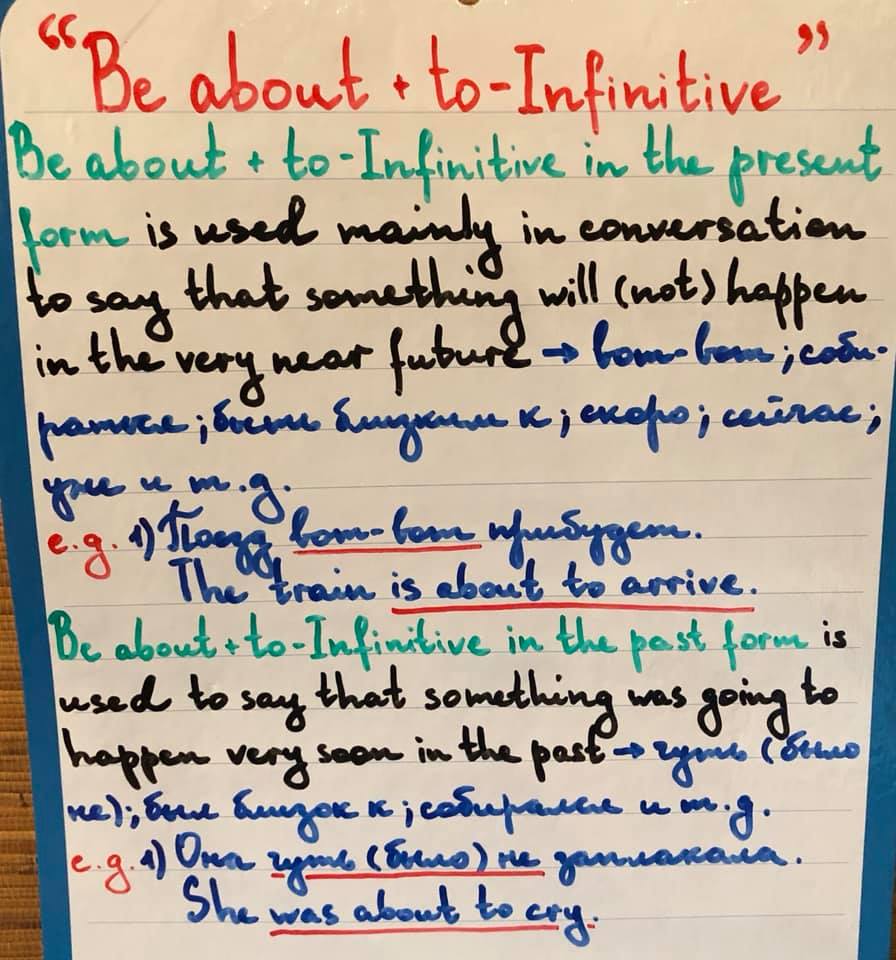 “Be about + to-Infinitive”
Be about + to-Infinitive in the present
form is used mainly in conversation
to say that something will (not) happen
in the very near future → вот-вот; соби-
раться; быть близким к; скоро; сейчас;
уже и т.д.
e.g. 1) Поезд вот-вот прибудет.
The train is about to arrive.
Be about + to-Infinitive in the past form is
used to say that something was going to
happen very soon in the past → чуть (было
не); был близок к; собирался и т.д.
e.g. 1) Она чуть (было) не заплакала.
She was about to cry.